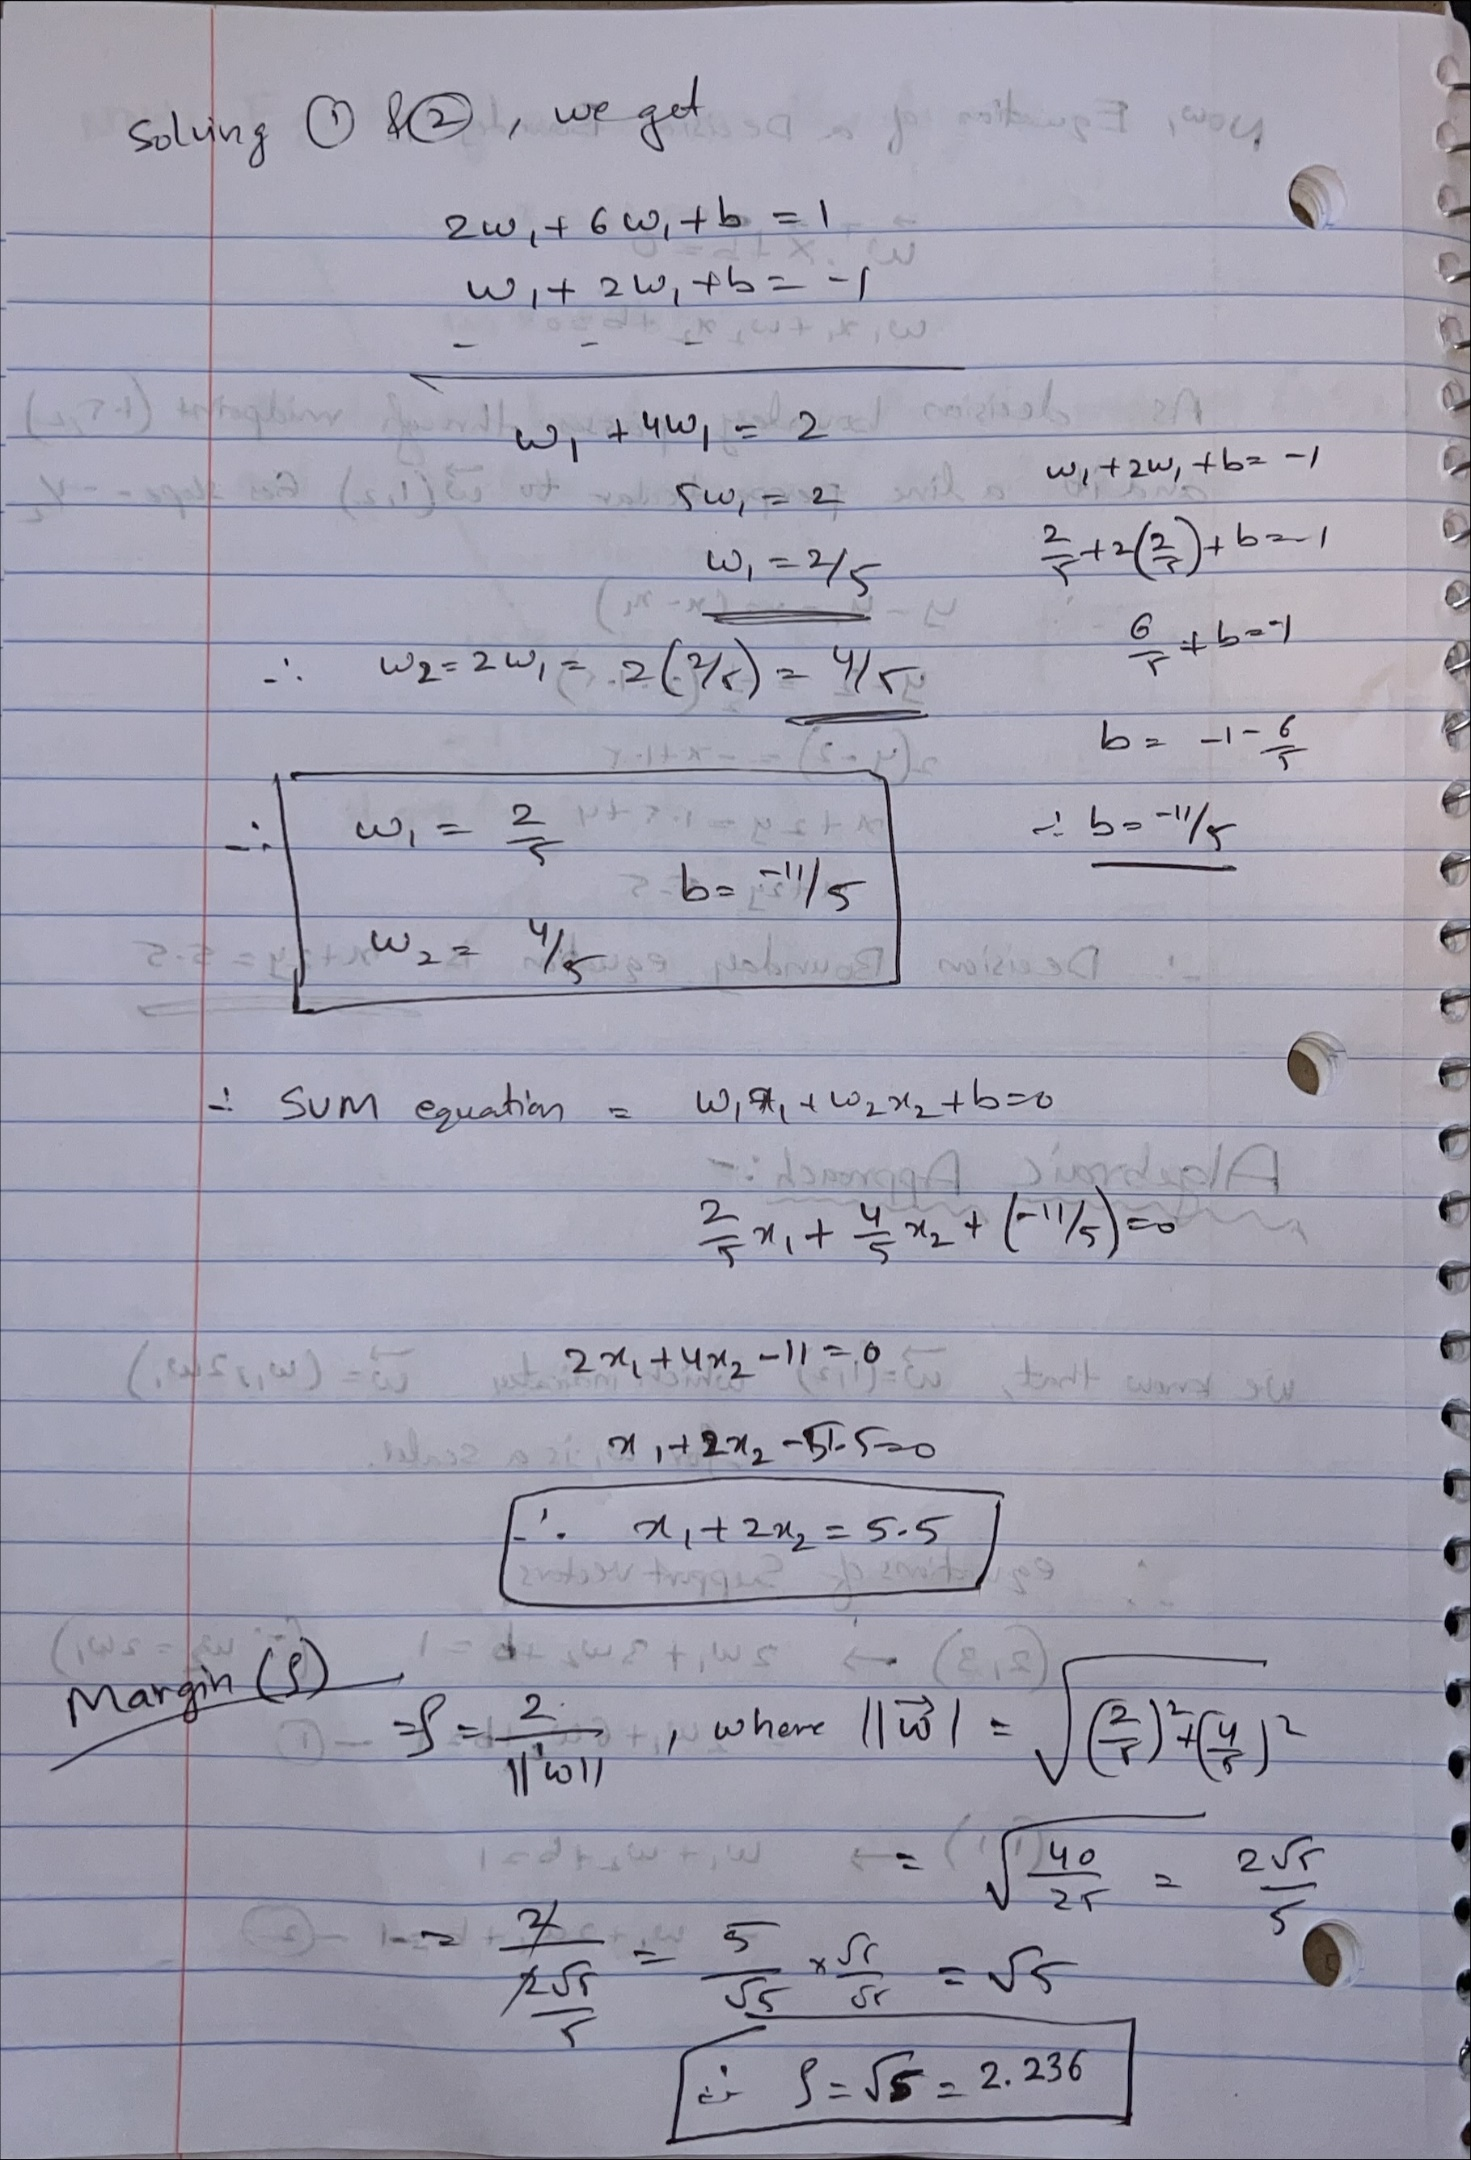 Solving ① & ②, we get
2w₁ + 6w₁ + b = 1
w₁ + 2w₁ + b = -1
- - -
w₁ + 4w₁ = 2
5w₁ = 2
w₁ = 2/5
∴ w₂ = 2w₁ = 2(2/5) = 4/5
w₁ + 2w₁ + b = -1
2/5 + 2(2/5) + b = -1
6/5 + b = -1
b = -1 - 6/5
∴ b = -11/5
∴ w₁ = 2/5
b = -11/5
w₂ = 4/5
∴ SVM equation = w₁x₁ + w₂x₂ + b = 0
2/5 x₁ + 4/5 x₂ + (-11/5) = 0
2x₁ + 4x₂ - 11 = 0
x₁ + 2x₂ - 5.5 = 0
∴ x₁ + 2x₂ = 5.5
Margin (ρ)
= ρ = 2/||w||, where ||w⃗| = √((2/5)² + (4/5)²)
= √(40/25) = 2√5/5
= 2/(2√5/5) = 5/√5 × √5/√5 = √5
∴ ρ = √5 = 2.236